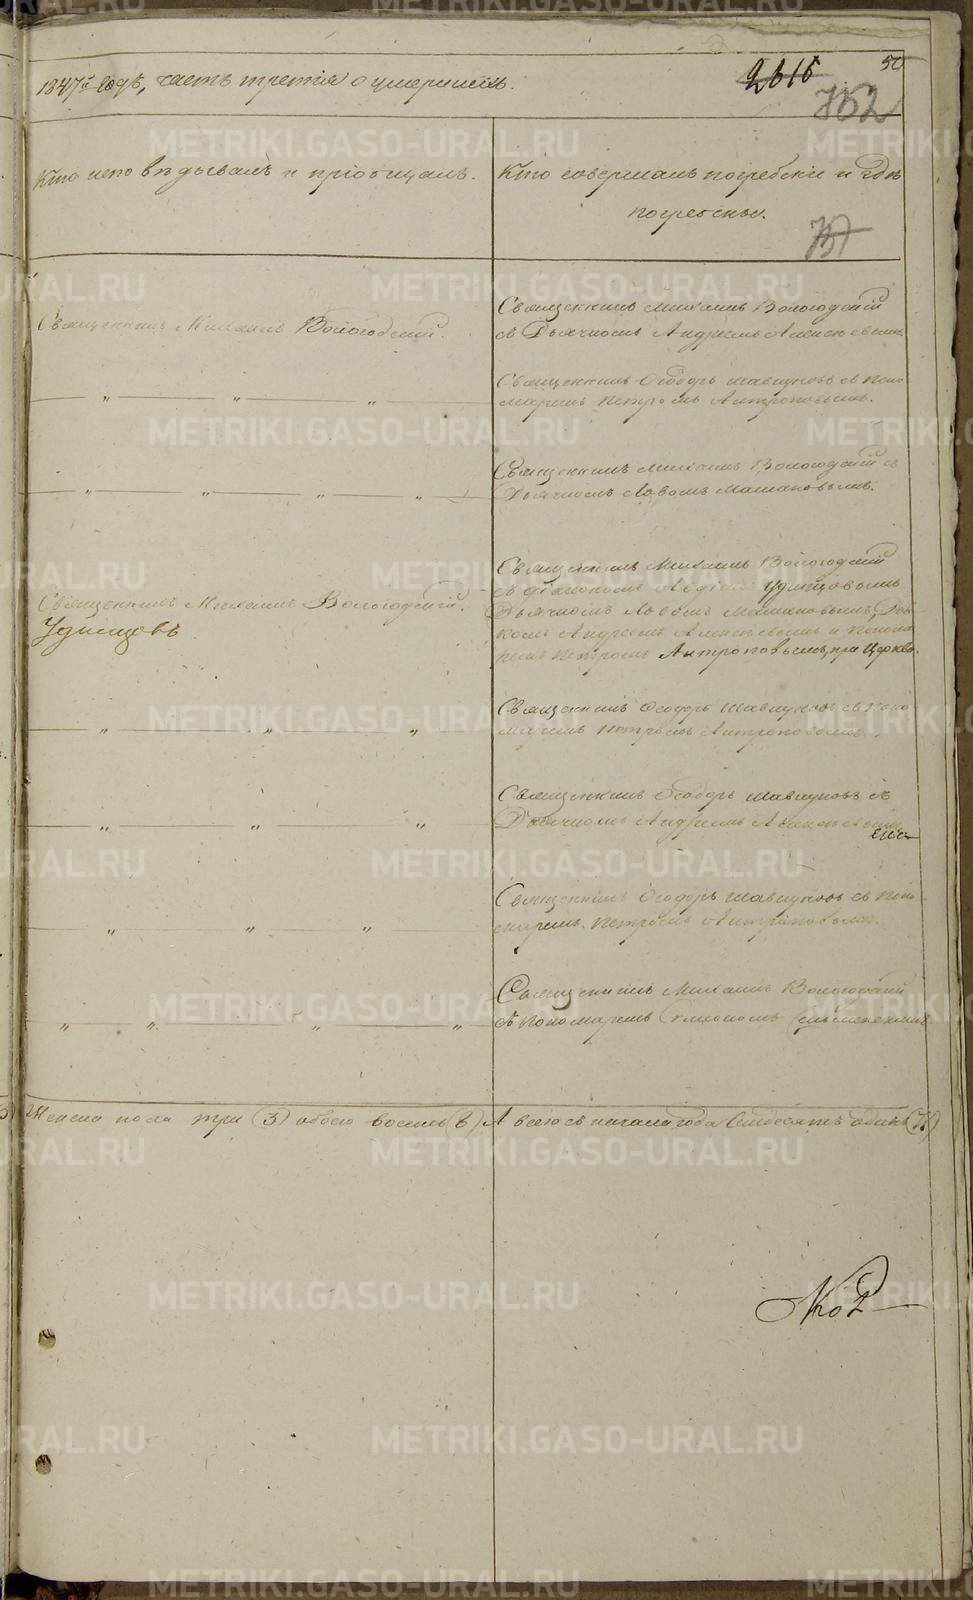 1847го годъ, часть третія о умершихъ.
2615
50
752
Кто исповѣдывалъ и пріобщалъ.
Кто совершалъ погребеніе и гдѣ
погребены.
Священникъ Михаилъ Вологодскій.
Священникъ Михаилъ Вологодскій
съ Дьячкомъ Андреемъ Алексѣевымъ.
Священникъ Ѳеодоръ Шавкуновъ съ Поно-
маремъ Петромъ Антроповымъ.
Священникъ Михаилъ Вологодскій съ
Дьячкомъ Львомъ
Священникъ Михаилъ Вологодскій.
Удинцовъ
Священникъ Михаилъ Вологодскій
съ діакономъ Удинцовымъ
Дьячкомъ Львомъ
Андреемъ Алексѣевымъ и Понома-
ремъ Петромъ Антроповымъ, при Церкви.
Священникъ Ѳеодоръ Шавкуновъ съ Поно-
маремъ Петромъ Антроповымъ.
Священникъ Ѳеодоръ Шавкуновъ съ
Дьячкомъ Андреемъ Алексѣевымъ
Священникъ Ѳеодоръ Шавкуновъ съ Поно-
маремъ Петромъ Антроповымъ.
Священникъ Михаилъ Вологодскій
съ Пономаремъ
Женска пола три (3) обоего восемь (8) А всего съ начала года Семдесятъ одинъ (71)
METRIKI.GASO-URAL.RU